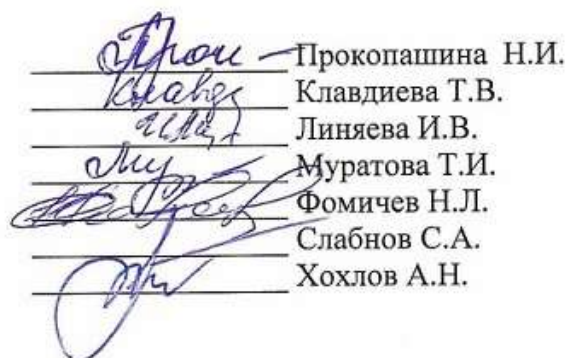 Прокопашина Н.И.
Клавдиева Т.В.
Линяева И.В.
Муратова Т.И.
Фомичев Н.Л.
Слабнов С.А.
Хохлов А.Н.